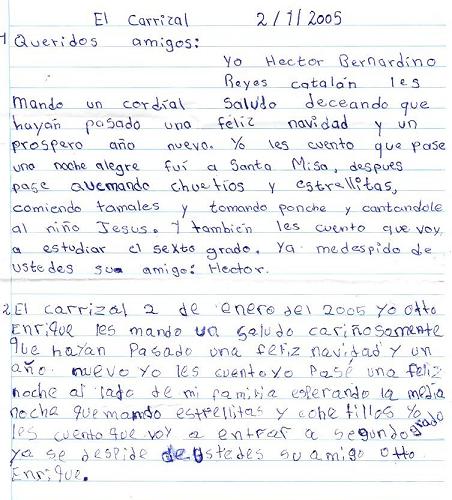 El Carrizal 2/1/2005
1 Queridos amigos:
Yo Hector Bernardino
Reyes catalán les
Mando un cordial saludo deceando que
hayan pasado una feliz navidad y un
prospero año nuevo. Yo les cuento que pase
una noche alegre fuí a Santa Misa, despues
pase quemando chuetios y estrellitas,
comiendo tamales y tomando ponche y cantandole
al niño Jesus. Y también les cuento que voy
a estudiar el sexto grado. Ya medespido de
ustedes su amigo: Hector.
2 El carrizal 2 de enero del 2005 yo otto
Enrique les mando un saludo cariñosamente
que hayan Pasado una feliz navidad y un
año nuevo yo les cuento yo Pasé una feliz
noche al lado de mi familia esperando la media
noche quemando estrellitas y cohetillos Yo
les cuento que voy a entrar a segundo grado
ya se despide de ustedes su amigo otto
Enrique.